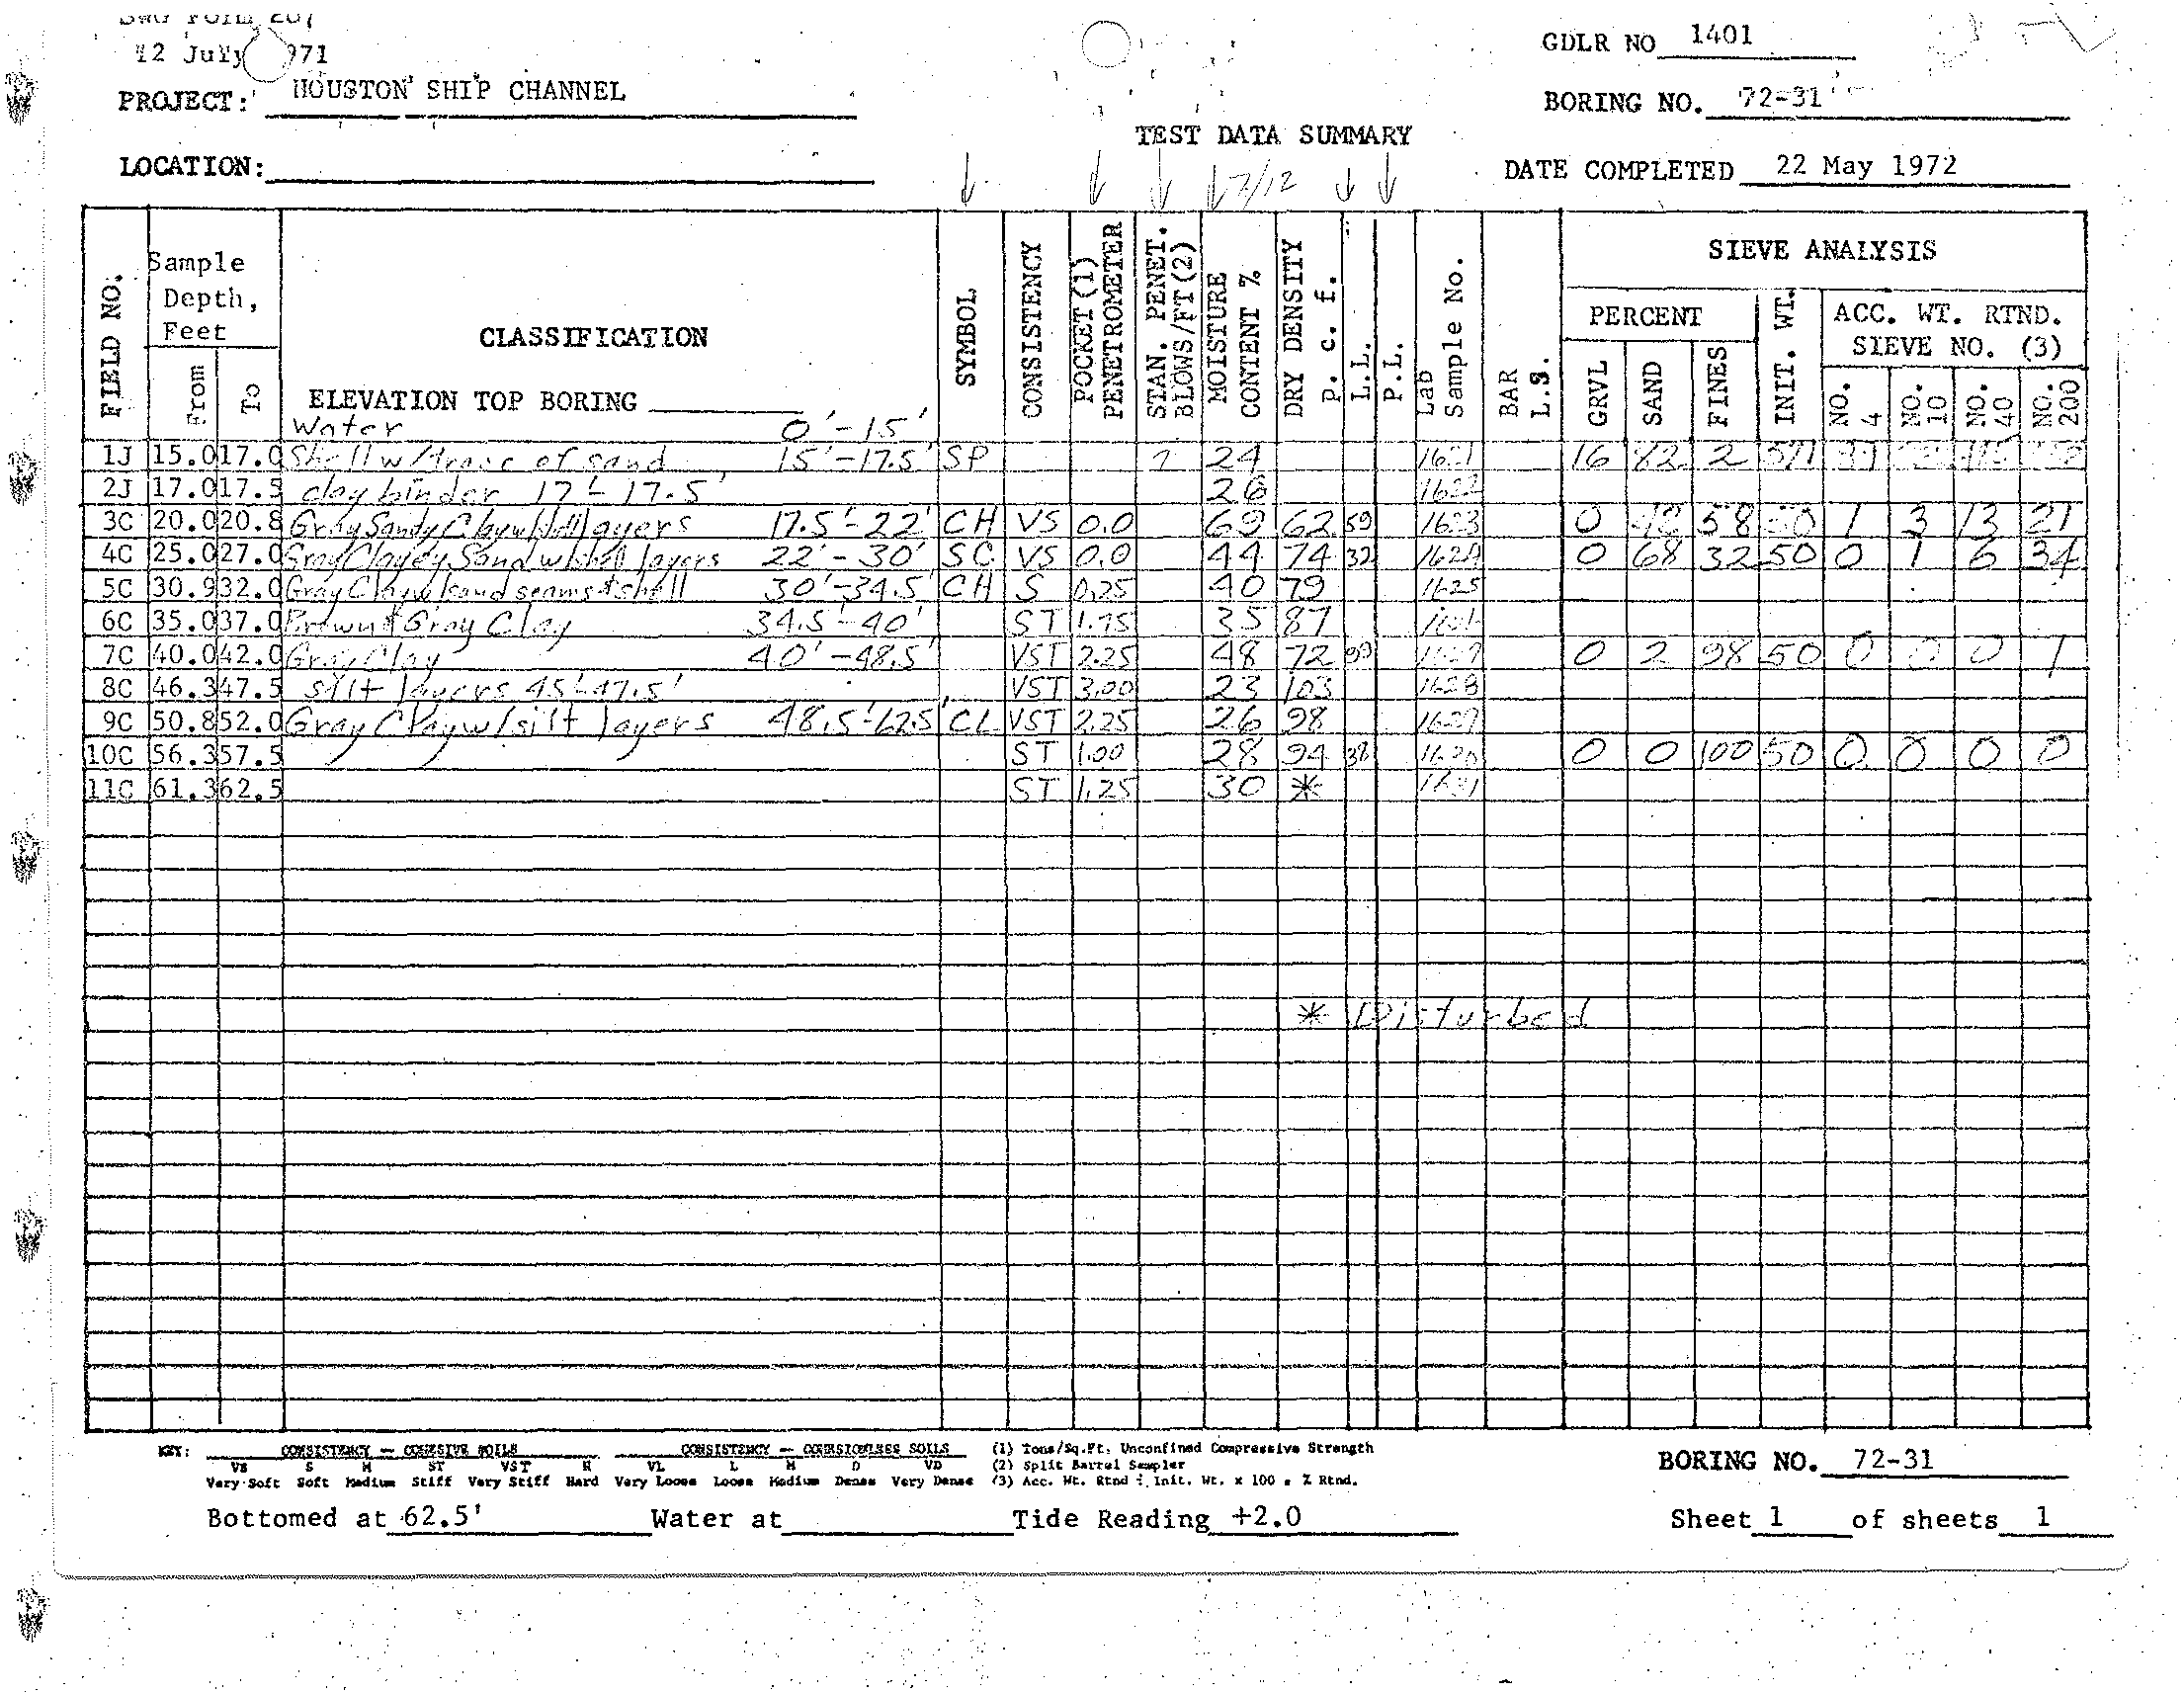 12 July 971
GDLR NO 1401
PROJECT: HOUSTON SHIP CHANNEL
BORING NO. 72-31
TEST DATA SUMMARY
LOCATION:
7/12
DATE COMPLETED 22 May 1972
FIELD NO.
Sample Depth, Feet
From
To
CLASSIFICATION
ELEVATION TOP BORING
SYMBOL
CONSISTENCY
POCKET (1) PENETROMETER
STAN. PENET. BLOWS/FT (2)
MOISTURE CONTENT %
DRY DENSITY p. c. f.
L.L.
P.L.
Lab Sample No.
BAR L.S.
SIEVE ANALYSIS
PERCENT
GRVL
SAND
FINES
INIT. WT.
ACC. WT. RTND.
SIEVE NO. (3)
NO. 4
NO. 10
NO. 40
NO. 200
Water 0'-15'
1J 15.0 17.0 Shell w/trace of sand, 15'-17.5' SP 24 1621 16 82 2 571
2J 17.0 17.5 clay binder 17'-17.5' 26 1622
3C 20.0 20.8 Gray Sandy Clay w/shell layers 17.5'-22' CH VS 0.0 69 62 59 1623 0 42 58 50 1 3 13 21
4C 25.0 27.0 Gray Clayey Sand w/shell layers 22'-30' SC VS 0.0 44 74 32 1624 0 68 32 50 0 1 6 34
5C 30.9 32.0 Gray Clay w/sand seams & shell 30'-34.5' CH S 0.25 40 79 1625
6C 35.0 37.0 Brown & Gray Clay 34.5'-40' ST 1.75 35 87
7C 40.0 42.0 Gray Clay 40'-48.5' VST 2.25 48 72 1627 0 2 98 50 0 0 0 1
8C 46.3 47.5 silt layers 45'-47.5' VST 3.00 23 103 1628
9C 50.8 52.0 Gray Clay w/silt layers 48.5'-62.5' CL VST 2.25 26 98 1629
10C 56.3 57.5 ST 1.00 28 94 38 1630 0 0 100 50 0 0 0 0
11C 61.3 62.5 ST 1.25 30 * 1631
* Disturbed
KEY: CONSISTENCY — COHESIVE SOILS CONSISTENCY — COHESIONLESS SOILS (1) Tons/Sq.Ft. Unconfined Compressive Strength
VS S M ST VST H VL L M D VD (2) Split Barrel Sampler
Very Soft Soft Medium Stiff Very Stiff Hard Very Loose Loose Medium Dense Very Dense (3) Acc. Wt. Rtnd ÷ Init. Wt. x 100 = % Rtnd.
BORING NO. 72-31
Bottomed at 62.5' Water at Tide Reading +2.0 Sheet 1 of sheets 1